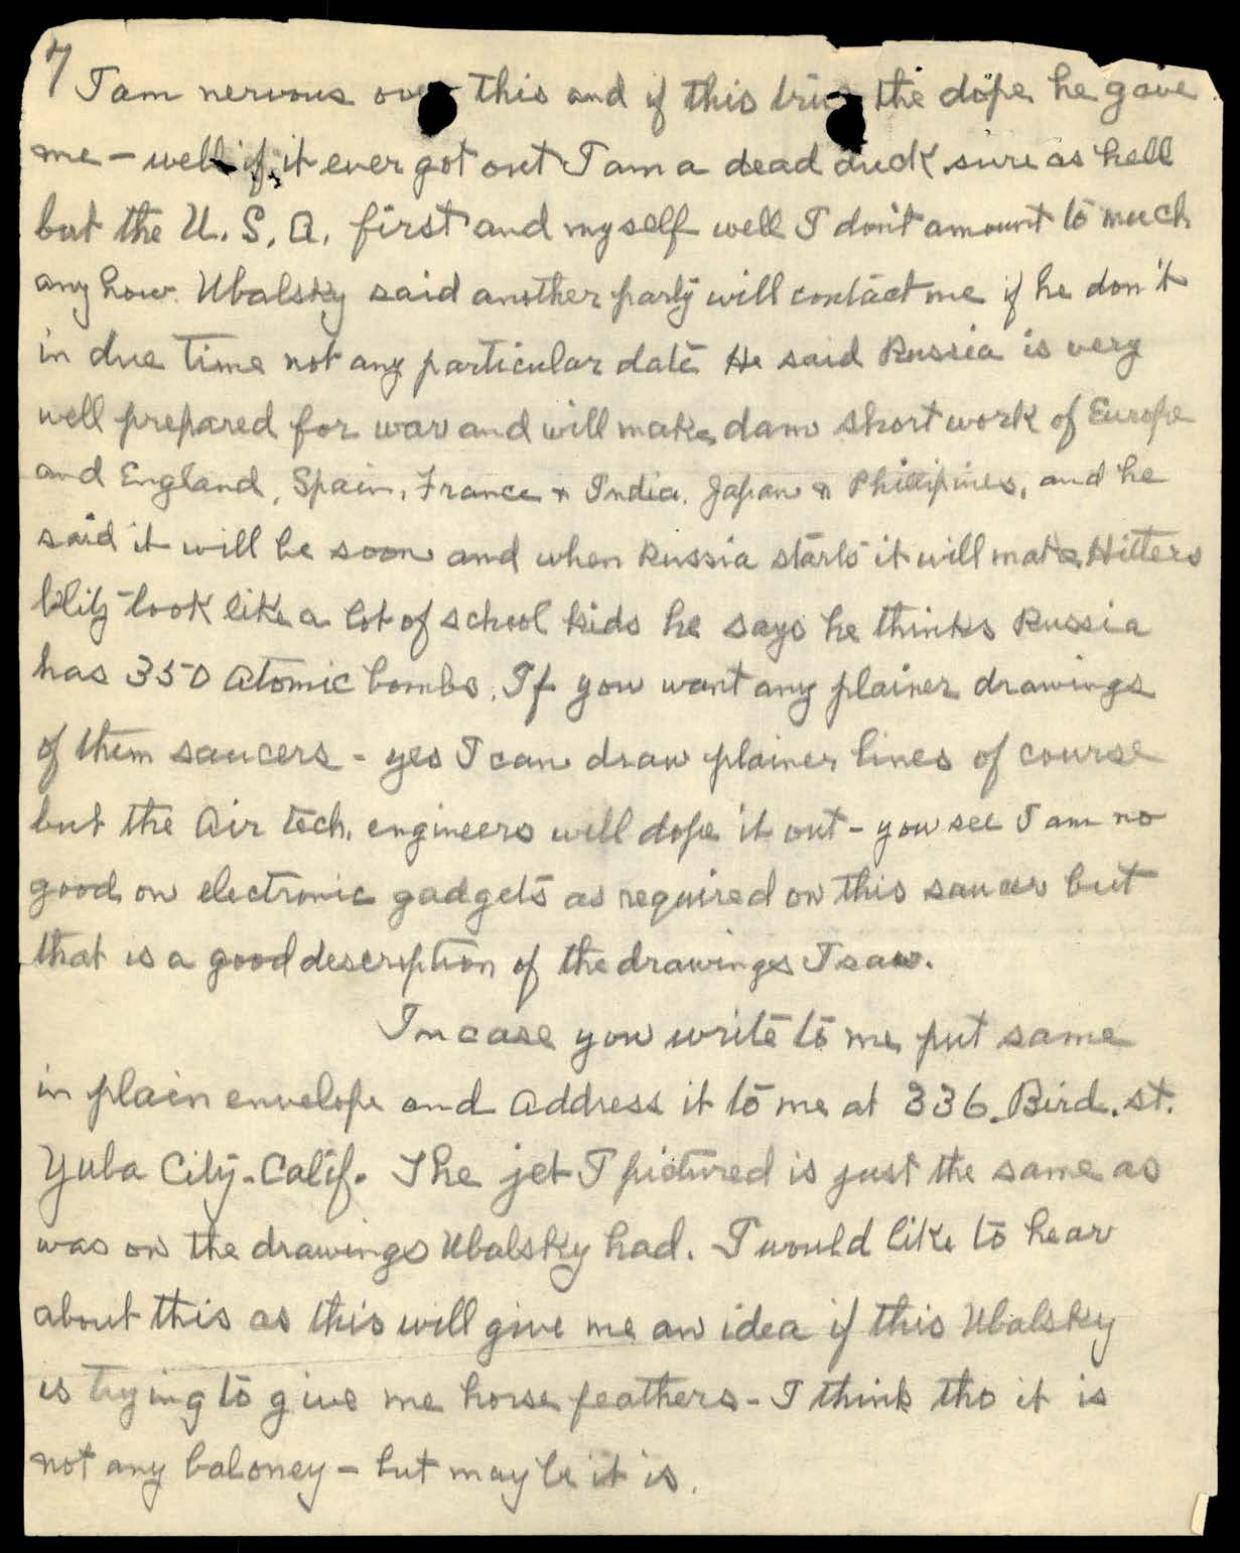 7
I am nervous over this and if this the dope he gave
me - well if it ever got out I am a dead duck sure as hell
but the U. S. A. first and myself well I don't amount to much
any how. Ubalsky said another party will contact me if he don't
in due time not any particular date He said Russia is very
well prepared for war and will make dam short work of Europe
and England, Spain, France & India. Japan & Phillipines, and he
said it will be soon and when Russia starts it will make Hitlers
blitz look like a lot of school kids he says he thinks Russia
has 350 atomic bombs. If you want any plainer drawings
of them saucers - yes I can draw plainer lines of course
but the Air tech. engineers will dope it out - you see I am no
good on electronic gadgets as required on this saucer but
that is a good description of the drawings I saw.
In case you write to me put same
in plain envelope and address it to me at 336 Bird. st.
Yuba City - Calif. The jet I pictured is just the same as
was on the drawings Ubalsky had. I would like to hear
about this as this will give me an idea if this Ubalsky
is trying to give me horse feathers - I think tho it is
not any baloney - but maybe it is.